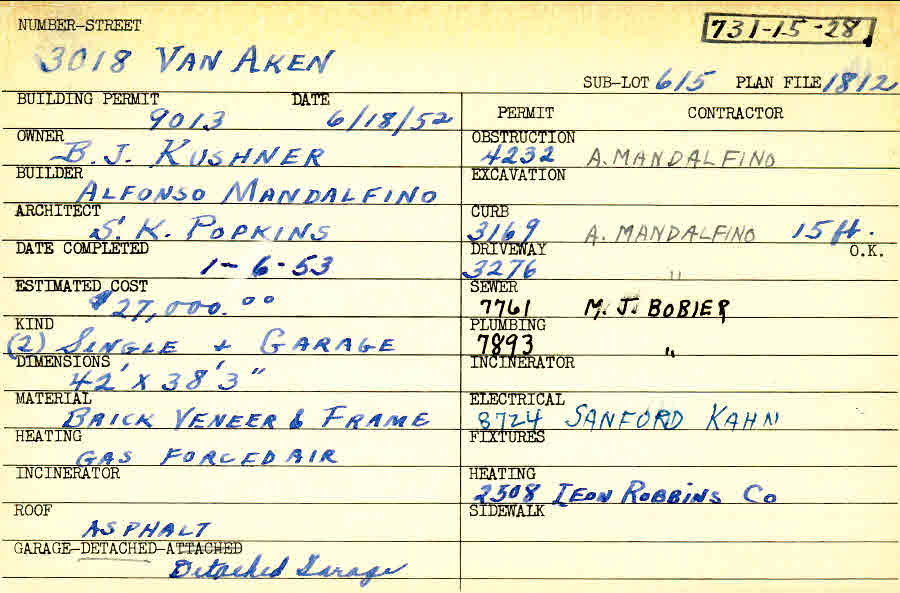 NUMBER-STREET
731-15-28
3018 VAN AKEN
SUB-LOT 615 PLAN FILE 1812
BUILDING PERMIT DATE
9013 6/18/52
OWNER
B. J. KUSHNER
BUILDER
ALFONSO MANDALFINO
ARCHITECT
S. K. POPKINS
DATE COMPLETED
1-6-53
ESTIMATED COST
$27,000.00
KIND
(2) SINGLE & GARAGE
DIMENSIONS
42' X 38'3"
MATERIAL
BRICK VENEER & FRAME
HEATING
GAS FORCED AIR
INCINERATOR
ROOF
ASPHALT
GARAGE-DETACHED-ATTACHED
Detached Garage
PERMIT CONTRACTOR
OBSTRUCTION
4232 A. MANDALFINO
EXCAVATION
CURB
3169 A. MANDALFINO 15 ft.
DRIVEWAY O.K.
3276 "
SEWER
7761 M. J. BOBIER
PLUMBING
7893 "
INCINERATOR
ELECTRICAL
8724 SANFORD KAHN
FIXTURES
HEATING
2508 LEON ROBBINS CO
SIDEWALK